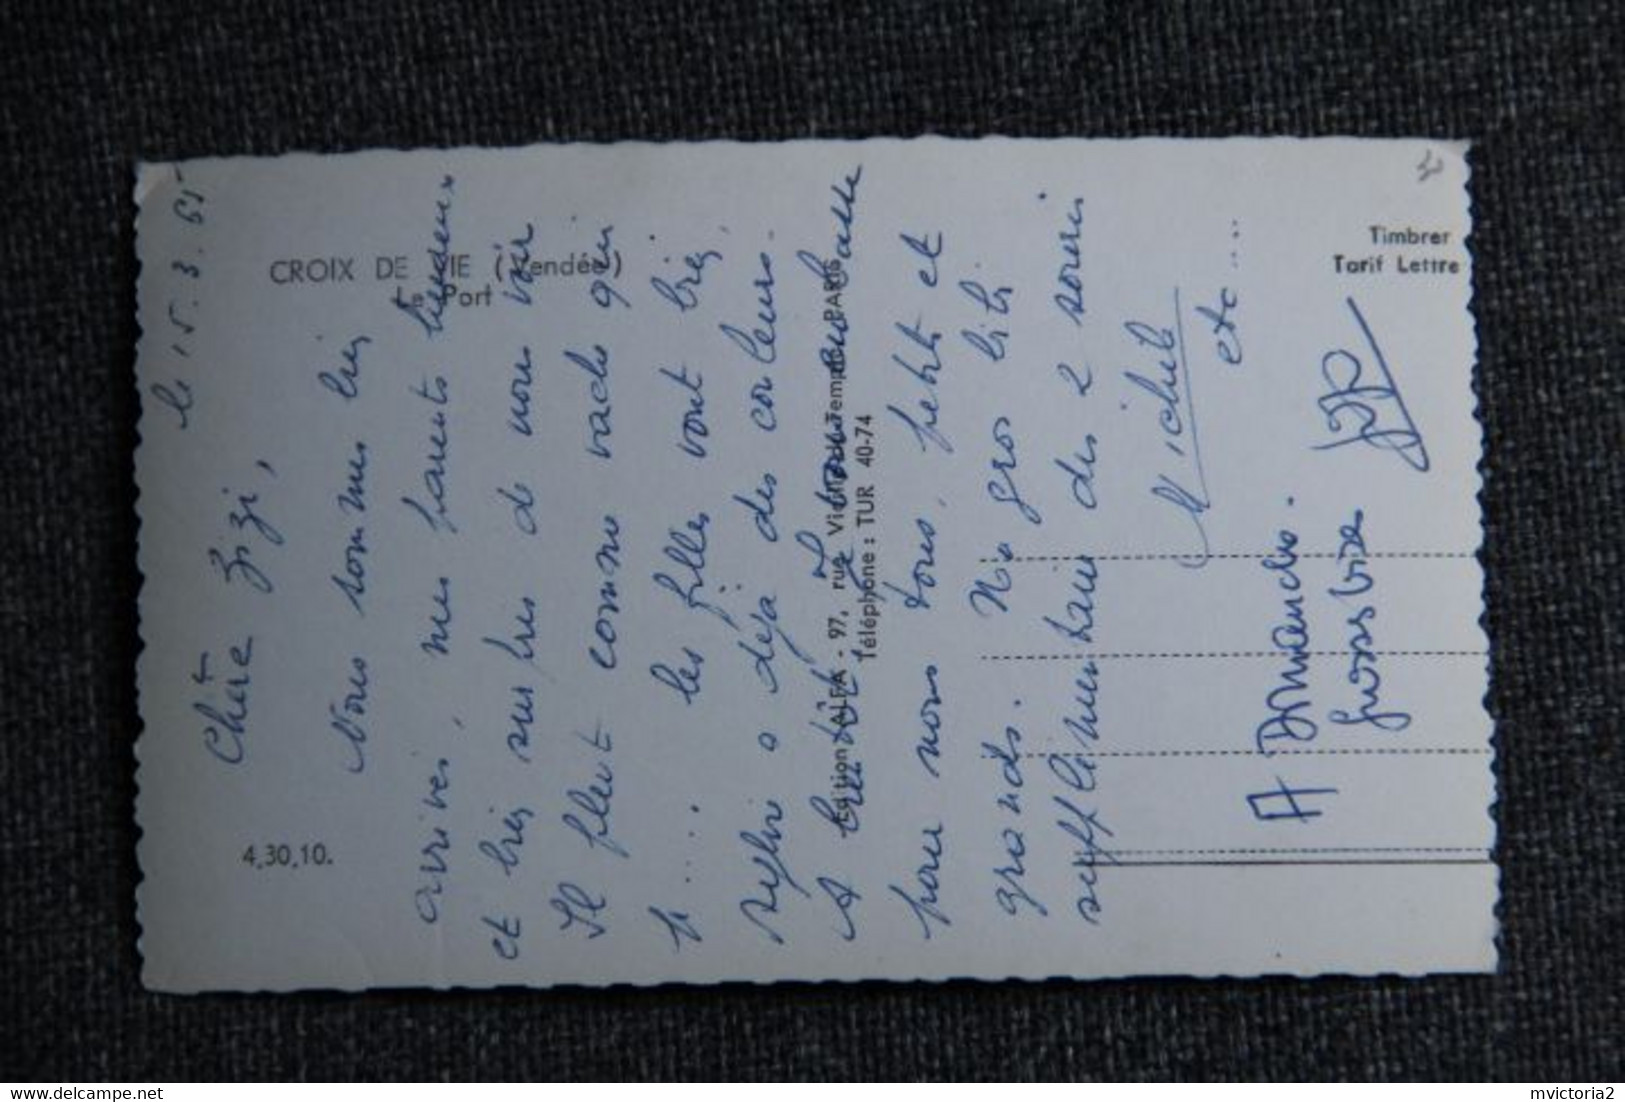 CROIX DE VIE (Vendée)
Le Port
Timbrer
Tarif Lettre
4,30,10.
Edition ALFA - 97, rue Vieille du Temple - PARIS
Téléphone : TUR 40-74
le 15.3.65
Chère Zizi,
Nous sommes bien
arrivés, mes parents heureux
et bien surpris de nous voir
Il pleut comme vache qui
p.... les filles vont bien,
Sylvie a déjà des couleurs.
A bientôt
pour nous tous, petits et
grands. gros bibi
supplémentaire des 2 souris
Michele
etc....
A Dimanche.
Gross Bise
mvictoria2